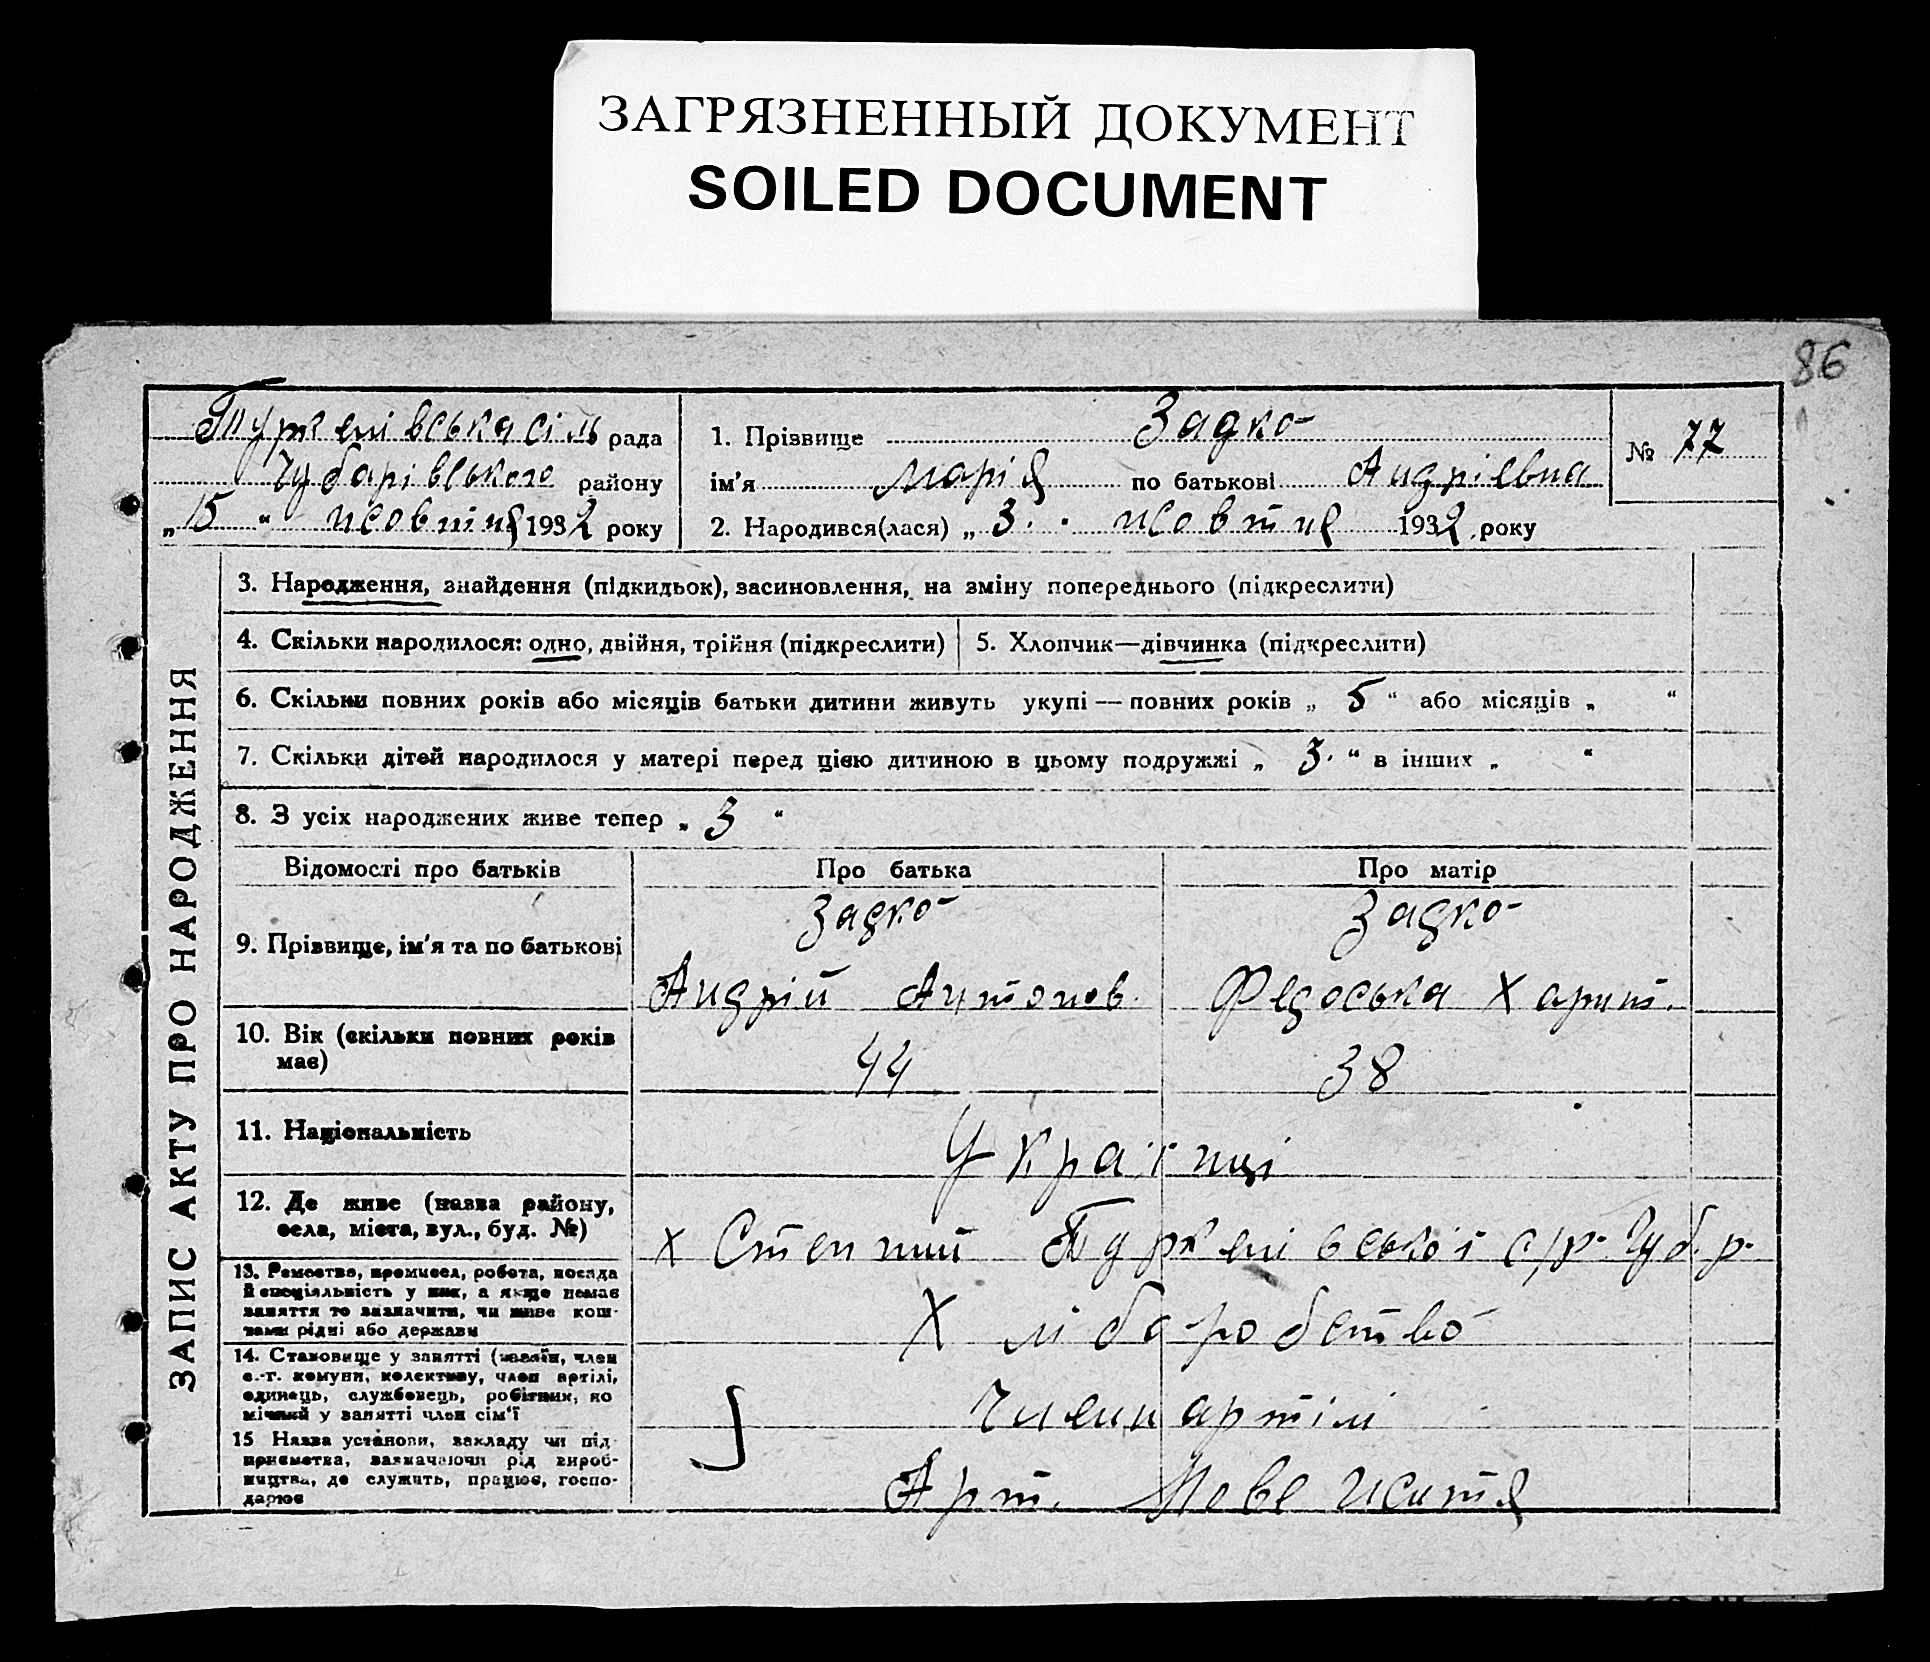 ЗАГРЯЗНЕННЫЙ ДОКУМЕНТ
SOILED DOCUMENT
86
Туркенівська сіль рада
Чубарівського району
„15“ жовтня 1932 року
1. Прізвище Задко
ім'я Марія по батькові Андріевна
№ 77
2. Народився(лася) „ 3. " жовтня 1932 року
ЗАПИС АКТУ ПРО НАРОДЖЕННЯ
3. Народження, знайдення (підкидьок), засиновлення, на зміну попереднього (підкреслити)
4. Скільки народилося: одно, двійня, трійня (підкреслити)
5. Хлопчик—дівчинка (підкреслити)
6. Скільки повних років або місяців батьки дитини живуть укупі — повних років „ 5 “ або місяців „ “
7. Скільки дітей народилося у матері перед цією дитиною в цьому подружжі „ 3. “ в інших „ “
8. З усіх народжених живе тепер „ 3 “
Відомості про батьків
Про батька
Про матір
9. Прізвище, ім'я та по батькові
Задко
Андрій Антонов.
Задко
Федоська Харит.
10. Вік (скільки повних років
має)
44
38
11. Національність
Українці
12. Де живе (назва району,
села, міста, вул., буд. №)
х Степний Туркенівської с/р. Чуб. р.
13. Ремество, промисел, робота, посада
й спеціяльність у них, а якщо немає
заняття то зазначити, чи живе кош-
тами рідні або держави
Хліборобство
14. Становище у занятті (хазяїн, член
с.-г. комуни, колективу, член артілі,
одинець, службовець, робітник, по
мічний у занятті член сім'ї
Члени артілі
15 Назва установи, закладу чи під-
приємства, зазначаючи рід вироб-
ництва, де служить, працює, госпо-
дарює
Арт. Нове Життя